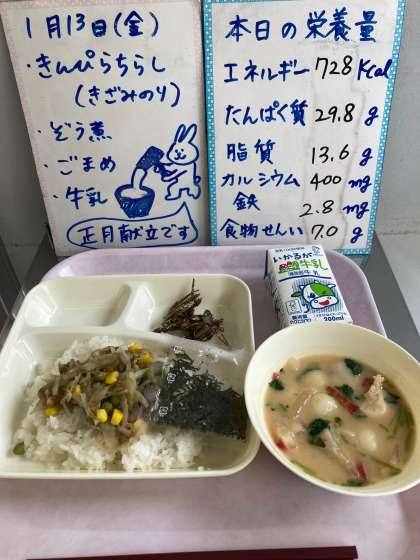 1月13日(金)
・きんぴらちらし
(きざみのり)
・ぞう煮
・ごまめ
・牛乳
正月献立です
本日の栄養量
エネルギー 728 Kcal
たんぱく質 29.8 g
脂質 13.6 g
カルシウム 400 mg
鉄 2.8 mg
食物せんい 7.0 g
いかるが
牛乳
200ml